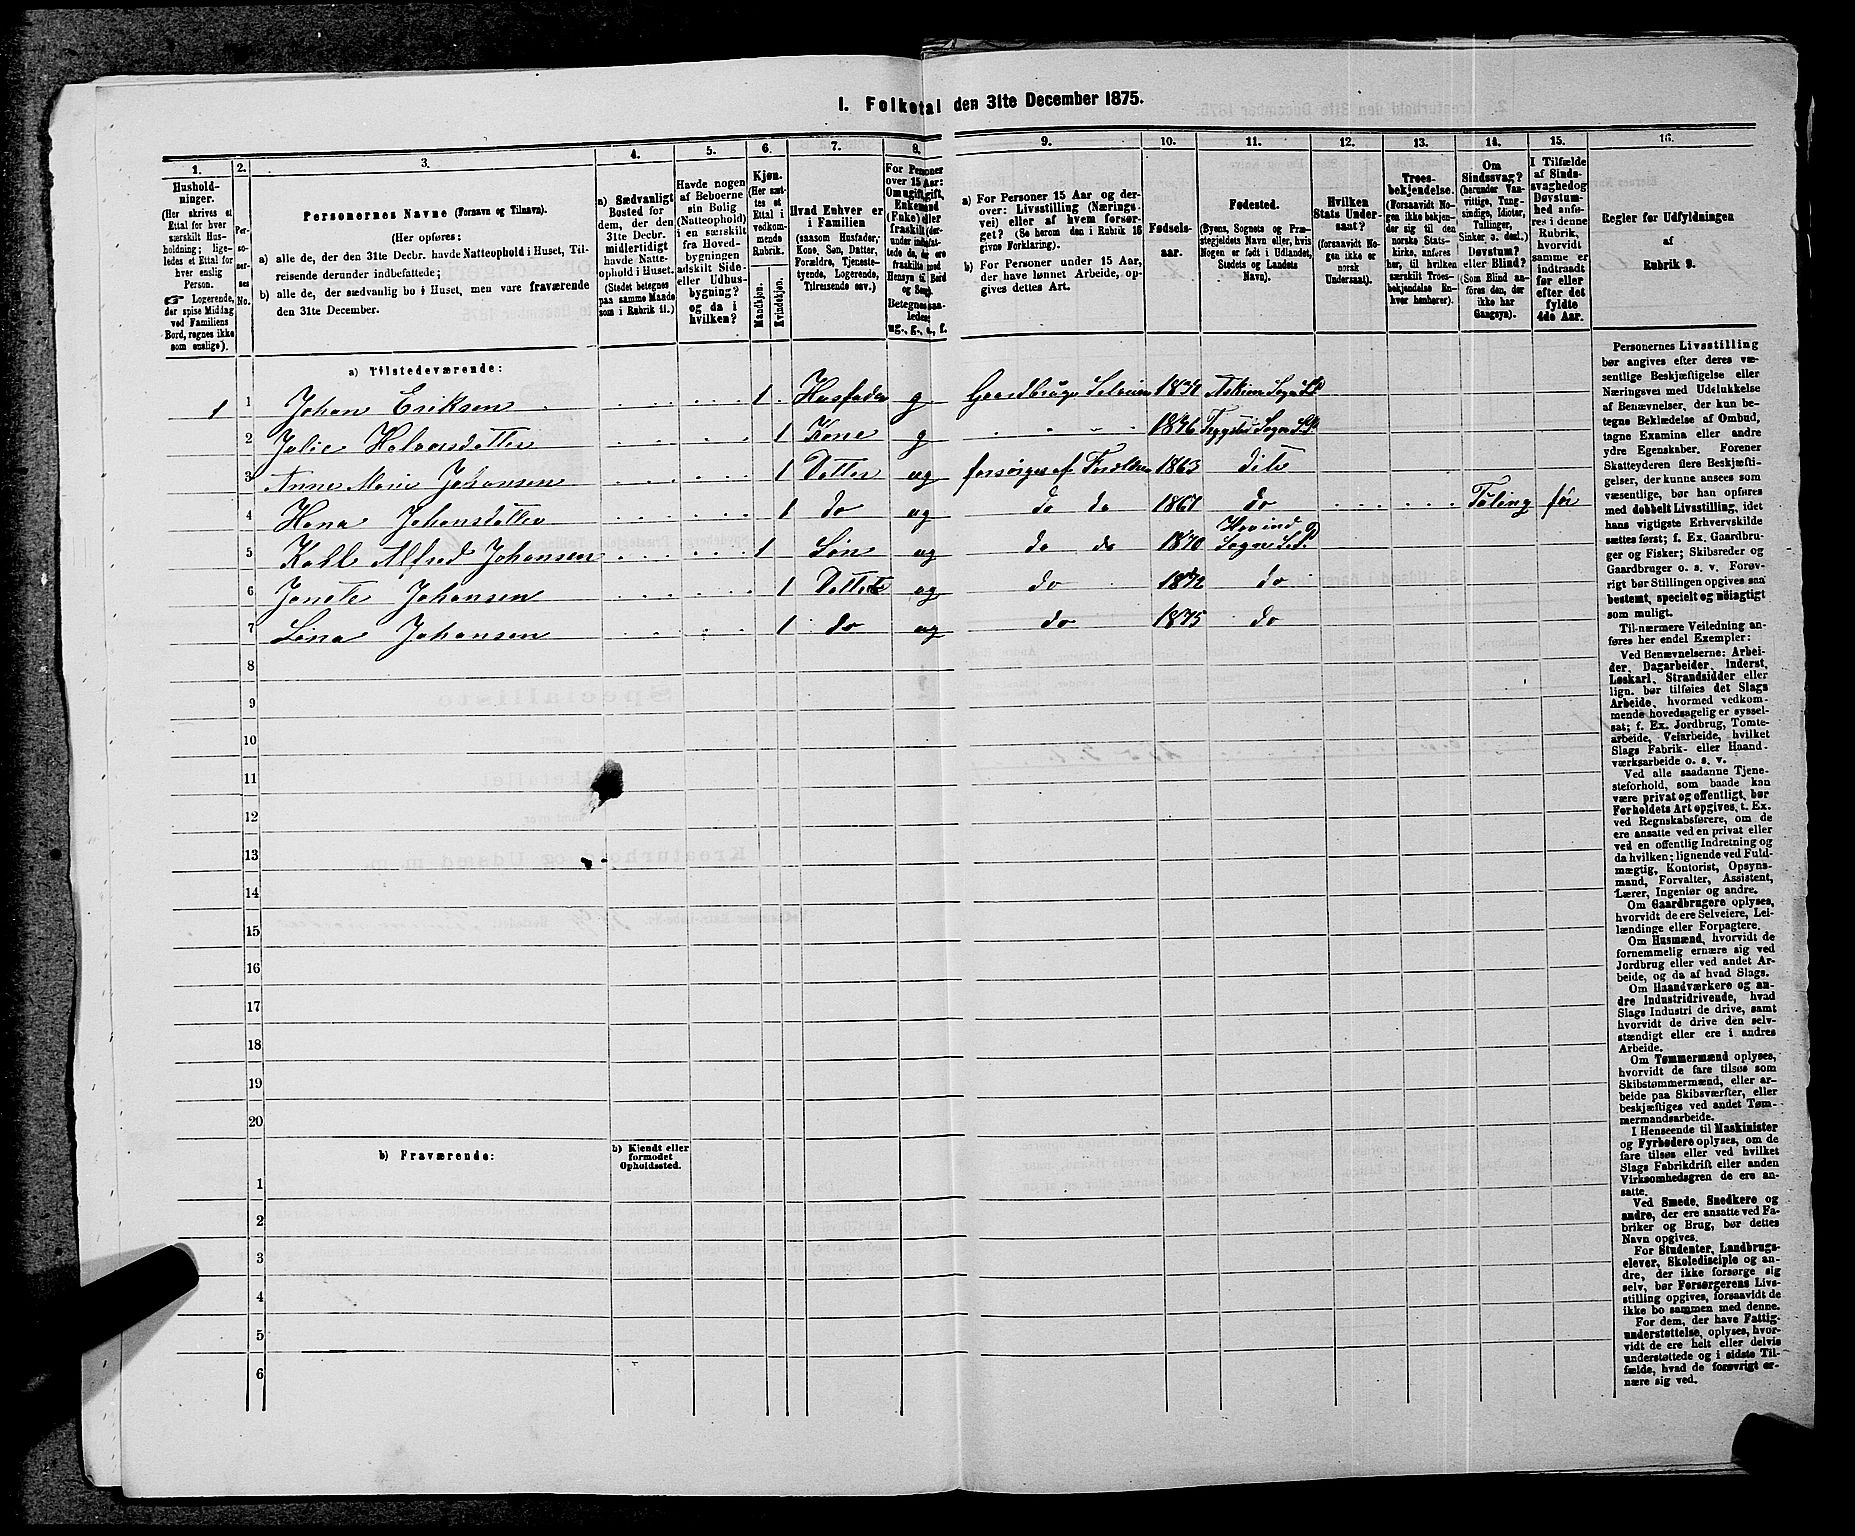 I. Folketal den 31te December 1875.
1. 2. 3. 4. 5. 6. 7. 8. 9. 10. 11. 12. 13. 14. 15. 16.
Hushold-
ninger.
(Her skrives et
Ettal for hver
særskilt Hus-
holdning; lige-
ledes et Ettal for
hver enslig
Person.
☞ Logerende,
der spise Middag
ved Familiens
Bord, regnes ikke
som enslige).
Per-
so-
ner-
nes
No.
Personernes Navne (Fornavn og Tilnavn).
(Her opføres:
a) alle de, der den 31te Decbr. havde Natteophold i Huset, Til-
reisende derunder indbefattede;
b) alle de, der sædvanlig bo i Huset, men vare fraværende
den 31te December.
a) Sædvanligt
Bosted for
dem, der den
31te Decbr.
midlertidigt
havde Natte-
ophold i Huset.
(Stedet betegnes
paa samme Maade
som i Rubrik 11.)
Havde nogen
af Beboerne
sin Bolig
(Natteophold)
i en særskilt
fra Hoved-
bygningen
adskilt Side-
eller Udhus-
bygning?
og da i
hvilken?
Kjøn.
(Her sæt-
tes et
Ettal i
vedkom-
mende
Rubrik.
Mandkjøn.
Kvindekjøn.
Hvad Enhver er
i Familien
(saasom Husfader,
Kone, Søn, Datter,
Forældre, Tjeneste-
tyende, Logerende,
Tilreisende osv.)
For Personer
over 15 Aar:
Om ugift, gift,
Enkemand
(Enke) eller
fraskilt (der-
under indbefat-
tede de, der ere
fraskilte med
Hensyn til Bord
og Seng).
Betegnes saa-
ledes:
ug., g., e., f.
a) For Personer 15 Aar og der-
over: Livsstilling (Nærings-
vei) eller af hvem forsør-
get? (Se herom den i Rubrik 16
givne Forklaring).
b) For Personer under 15 Aar,
der have lønnet Arbeide, op-
gives dettes Art.
Fødsels-
aar.
Fødested.
(Byens, Sognets og Præ-
stegjeldets Navn eller, hvis
Nogen er født i Udlandet,
Stedets og Landets
Navn).
Hvilken
Stats Under-
saat?
(forsaavidt No-
gen ikke er
norsk
Undersaat).
Troes-
bekjendelse.
(Forsaavidt No-
gen ikke bekjen-
der sig til den
norske Stats-
kirke, anføres
her, til hvilken
særskilt Troes-
bekjendelse En-
hver henhører).
Om
Sindssvag?
(herunder Van-
vittige, Tung-
sindige, Idioter,
Tullinger,
Sinker, o. desl.)
Døvstum
eller Blind?
(Som Blind an-
føres den, der
ikke har
Gangsyn).
I Tilfælde
af Sinds-
svaghed og
Døvstum-
hed anfø-
res i denne
Rubrik,
hvorvidt
samme er
indtraadt
før eller
efter det
fyldte
4de Aar.
Regler for Udfyldningen
af
Rubrik 9.
a) Tilstedeværende:
1 1 Johan Eriksen 1 Husfader g Gaardbruger Seleier Askim Sogn
2 Julie Halvorsdatter 1 Kone g 1846 Trygstad Sogn
3 Anne Marie Johansen 1 Datter ug forsørges af 1863 dito
4 Hana Johansdatter 1 do ug do do 1867 do Tuling før
5 Karl Alfred Johansen 1 Søn ug do do 1870 Hovind Sogn
6 Janete Johansen 1 Datter ug do 1872 do
7 Lina Johansen 1 do ug do 1875 do
8
9
10
11
12
13
14
15
16
17
18
19
20
b) Fraværende:
b) Kjendt eller
formodet
Opholdssted.
1
2
3
4
5
6
Personernes Livsstilling
bør angives efter deres væ-
sentlige Beskjæftigelse eller
Næringsvei med Udelukkelse
af Benævnelser, der kun be-
tegne Beklædelse af Ombud,
tagne Examina eller andre
ydre Egenskaber. Forener
Skatteyderen flere Beskjæfti-
gelser, der kunne ansees som
væsentlige, bør han opføres
med dobbelt Livsstilling, idet
hans vigtigste Erhvervskilde
sættes først; f. Ex. Gaardbru-
ger og Fisker; Skibsreder og
Gaardbruger o. s. v. Forøv-
rigt bør Stillingen opgives saa
bestemt, specielt og nøiagtigt
som muligt.
Til nærmere Veiledning an-
føres her endel Exempler:
Ved Benævnelserne: Arbei-
der, Dagarbeider, Inderst,
Løskarl, Strandsidder eller
lign. bør tilføies det Slags
Arbeide, hvormed vedkom-
mende hovedsagelig er syssel-
sat; f. Ex. Jordbrug, Tomte-
arbeide, Veiarbeide, hvilket
Slags Fabrik- eller Haand-
værksarbeide o. s. v.
Ved alle saadanne Tjene-
steforhold, som baade kan
være privat og offentligt, bør
Forholdets Art opgives, t. Ex.
ved Regnskabsførere, om de
ere ansatte ved en privat eller
ved en offentlig Indretning og
da hvilken; lignende ved Fuld-
mægtig, Kontorist, Opsyns-
mand, Forvalter, Assistent,
Lærer, Ingeniør og andre.
Om Gaardbrugere oplyses,
hvorvidt de ere Selveiere, Lei-
lændinge eller Forpagtere.
Om Husmænd, hvorvidt de
fornemmelig ernære sig ved
Jordbrug eller ved andet Ar-
beide, og da af hvad Slags.
Om Haandværkere og an-
dre Industridrivende, hvad
Slags Industri de drive, samt
hvorvidt de drive den selv-
stændigt eller ere i andres
Arbeide.
Om Tømmermænd oplyses,
hvorvidt de fare tilsøs som
Skibstømmermænd, eller ar-
beide paa Skibsværfter, eller
beskjæftiges ved andet Tøm-
mermandsarbeide.
I Henseende til Maskinister
og Fyrbødere oplyses, om de
fare tilsøs eller ved hvilket
Slags Fabrikdrift eller anden
Virksomhedsgren de ere an-
satte.
Ved Smede, Snedkere og
andre, der ere ansatte ved Fa-
briker og Brug, bør dettes
Navn opgives.
For Studenter, Landbrugs-
elever, Skoledisciple og an-
dre, der ikke forsørge sig
selv, bør Forsørgerens Livs-
stilling opgives, forsaavidt de
ikke bo sammen med denne.
For dem, der have Fattig-
understøttelse, oplyses, hvor-
vidt de ere helt eller delvis
understøttede og i sidste Til-
fælde, hvad de forøvrigt er-
nære sig ved.